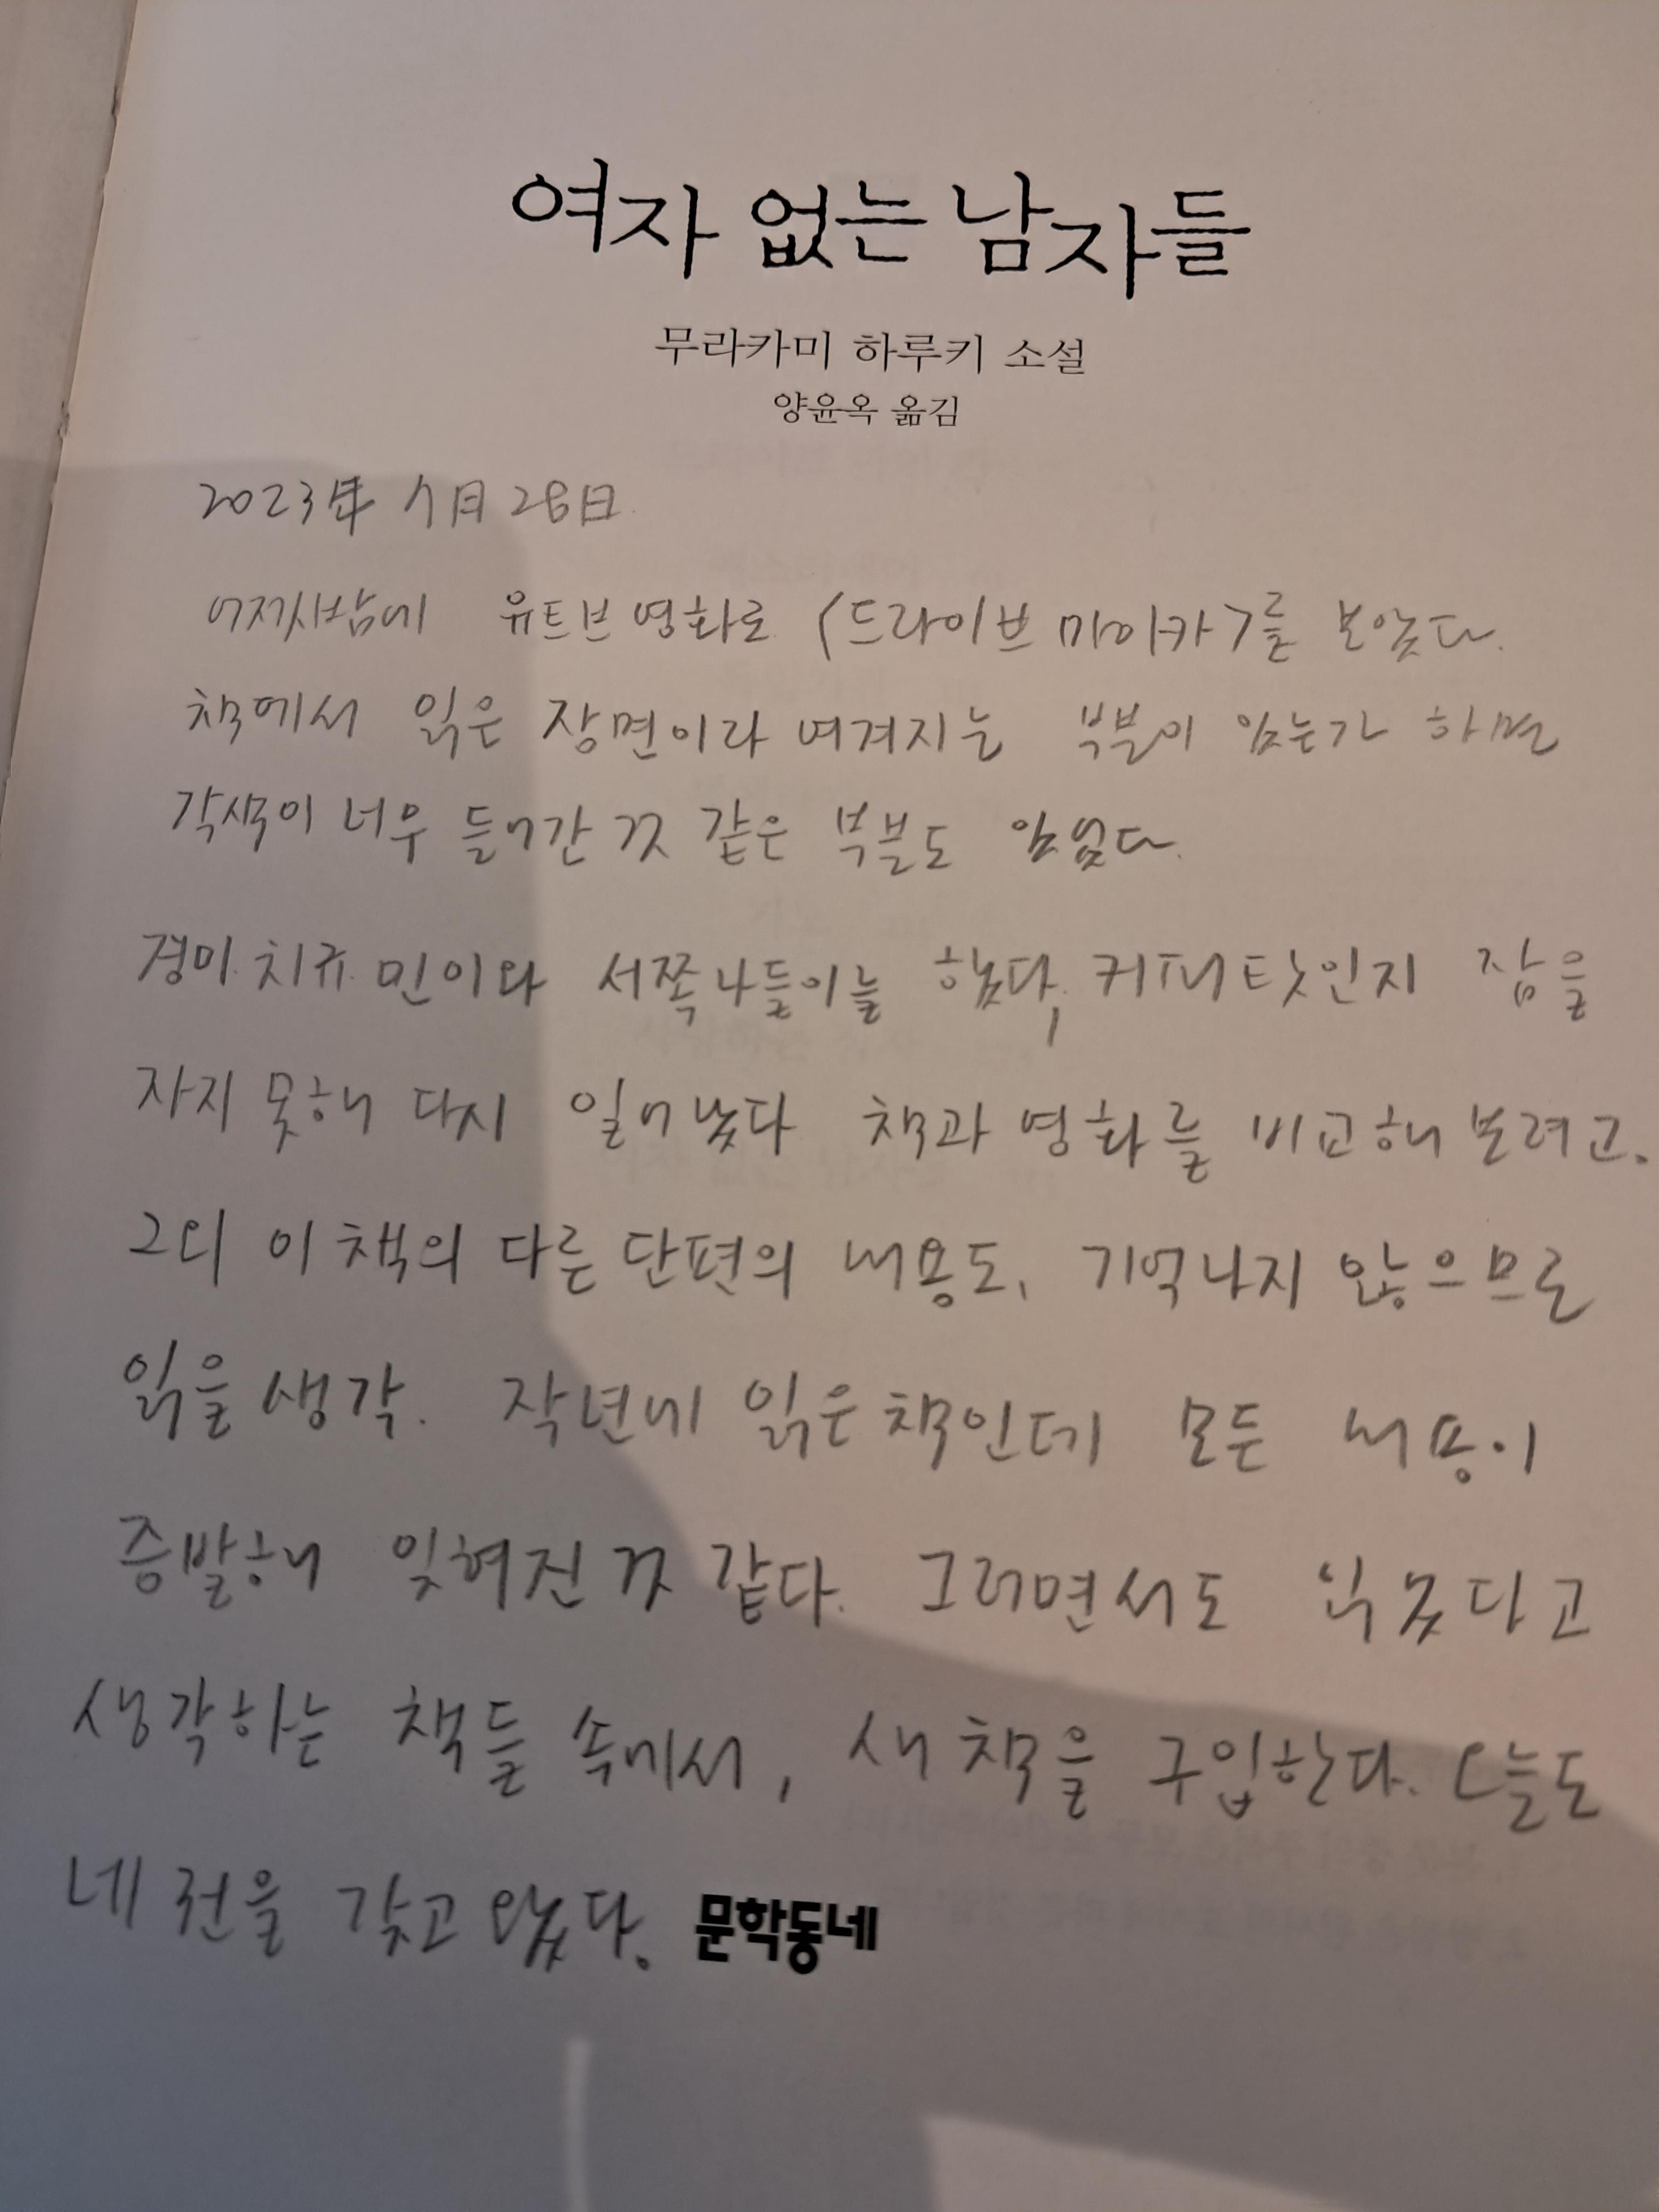 여자 없는 남자들
무라카미 하루키 소설
양윤옥 옮김
2023年 7月 28日
어젯밤에 유트브 영화로 <드라이브 마이카>를 보았다.
책에서 읽은 장면이라 여겨지는 부분이 있는가 하면
각색이 너무 들어간 것 같은 부분도 있었다.
경미. 치규. 민이와 서쪽나들이를 했다, 커피 탓인지 잠을
자지 못해 다시 일어났다 책과 영화를 비교해 보려고.
그외 이 책의 다른 단편의 내용도, 기억나지 않으므로
읽을 생각. 작년에 읽은 책인데 모든 내용이
증발해 잊혀진 것 같다. 그러면서도 읽었다고
생각하는 책들 속에서, 새 책을 구입한다. 오늘도
네 권을 갖고 왔다. 문학동네